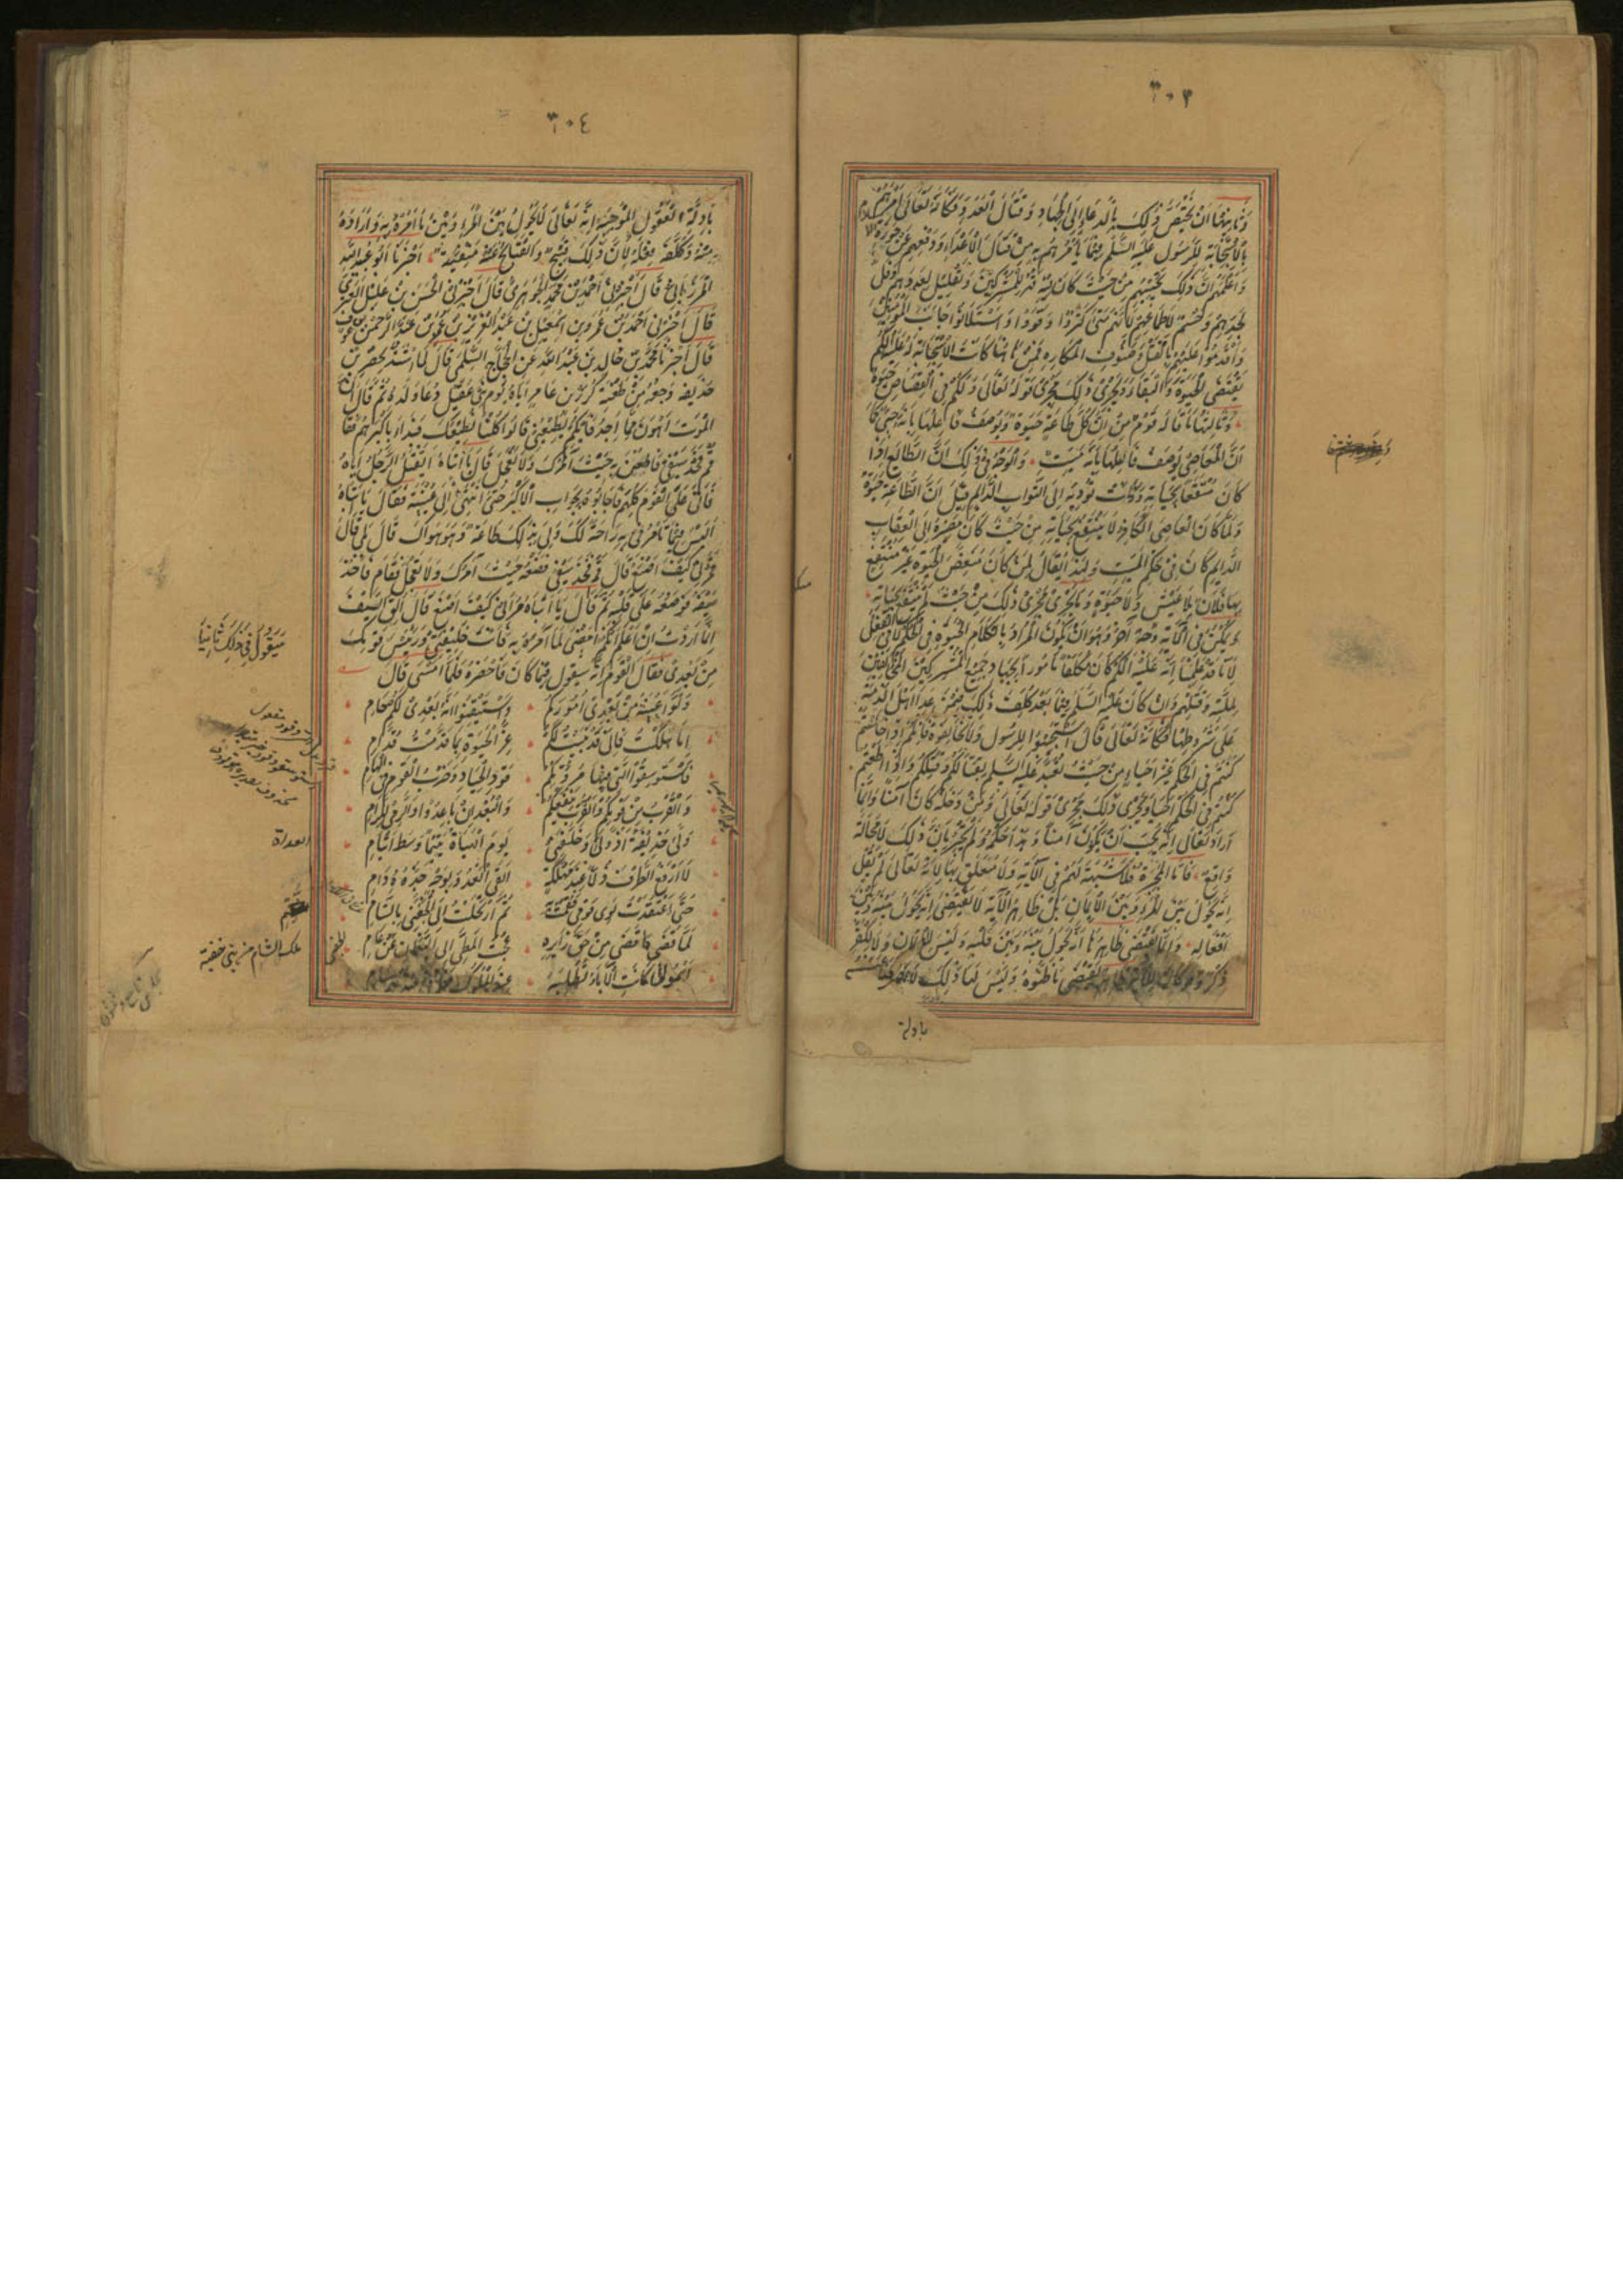 ٣٠٣
وثانيها ان يختص ذلك بالدعاء الى الجهاد وقتال العدو فكانه تعالى امرهم
بالاستجابة للرسول عليه السلم فيما يامرهم به من قتال الاعداء ودفعهم عن حوزة الاسلام
واعلمهم ان ذلك يحييهم من حيث كان فيه قهر للمشركين وتقليل لعددهم وفل
لحدهم وحسم لاطماعهم لانهم متى كثروا وقووا واستلانوا جانب المؤمنين
واقدموا عليهم بالقتل وصنوف المكاره فمن هاهنا كانت الاستجابة له عليه السلم
تقتضى الحيوة والبقاء ويجرى ذلك مجرى قوله تعالى ولكم فى القصاص حيوة
وثالثها ما قاله قوم من ان كل طاعة حيوة ويوصف فاعلها بانه حى كما
ان المعاصى يوصف فاعلها بانه ميت والوجه فى ذلك ان الطايع اذا
كان منتفعا بحياته وكانت تؤديه الى الثواب الدايم قيل ان الطاعة حيوة
ولما كان العاصى الكافر لا ينتفع بحياته من حيث كان مصيره الى العقاب
الدايم كان فى حكم الميت ولهذا يقال لمن كان منغص الحيوة غير منتفع
بها فلان بلا عيش ولا حيوة وما يجرى مجرى ذلك من حيث لم ينتفع بحياته
ويمكن فى الاية وجه آخر وهو ان يكون المراد بالكلام الحيوة فى الحكم لا فى الفعل
لانا قد علمنا انه عليه السلم كان مكلفا مامورا بجهاد جميع المشركين المخالفين
لملته وقتلهم وان كان عليه السلم فيما بعد كلف ذلك فيمن عدا اهل الذمة
على شروطها فكانه تعالى قال استجيبوا للرسول ولا تخالفوه فانكم اذا خالفتم
كنتم فى الحكم غير احياء من حيث تعبد عليه السلم بقتالكم وقتلكم واذا اطعتم
كنتم فى الحكم احياء ويجرى ذلك مجرى قوله تعالى ومن دخله كان آمنا وانما
اراد تعالى انه يجب ان يكون آمنا وهذا حكمه ولم يخبر بان ذلك لا محالة
واقع فاما المجبرة فلا شبهة لهم فى الآية ولا متعلق بها لانه تعالى لم يقل
انه يحول بين المرء وبين الايمان بل ظاهر الآية لا يقتضى انه يحول بينه وبين
افعاله وانما يقتضى ظاهرها انه يحول بينه وبين قلبه وليس للايمان ولا للكفر
ذكر ولو كان للآية ظاهر يقتضى ما ظنوه وليس لها ذلك لانصرفنا عنه
بادلة
٣٠٤
بادلة العقول الموجبة انه تعالى لا يحول بين المرء وبين ما امره به واراده
منه وكلفه فعله لان ذلك قبيح والقبايح عنه منفية اخبرنا ابو عبيد الله
المرزبانى قال اخبرنى احمد بن محمد الجوهرى قال اخبرنى الحسن بن عليل العنزى
قال اخبرنى احمد بن عمرو بن اسمعيل بن عبد العزيز بن عمر بن عبد الرحمن بن عوف
قال اخبرنا محمد بن خالد بن عبد الله عن الحجاج السلمى قال لما اشتد بحصن بن
حذيفة وجعه من طعنة كرز بن عامر اياه يوم بنى عقيل دعا ولده ثم قال ان
الموت اهون مما اجد فايكم يطيعنى قالوا كلنا نطيعك فبدا باكبرهم فقال
قم فخذ سيفى فاطعن به حيث آمرك ولا تعجل قال يا ابتاه ايقتل الرجل اباه
فاتى على القوم كلهم فاجابوه بجواب الاكبر حتى انتهى الى عيينة فقال يا ابتاه
اليس فيما تامرنى به راحة لك ولى بذلك طاعة وهو هواك قال بلى قال
فمرنى كيف اصنع قال قم فخذ سيفى فضعه حيث آمرك ولا تعجل فقام فاخذ
سيفه فوضعه على قلبه ثم قال يا ابتاه مرنى كيف اصنع قال الق السيف
انما اردت ان اعلم ايكم امضى لما آمره به فانت خليفتى ورئيس قومك
من بعدى فقال القوم انه سيقول فيما كان فاحضره فلما امسى قال
ولوا عيينة من بعدى اموركم واستيقنوا انه بعدى لكم حام
اما هلكت فانى قد بنيت لكم عز الحيوة بما قدمت قدامى
فاستوسقوا للتى فيها مروتكم قود الجياد وضرب القوم فى الهام
والقرب من قومكم والقرب ينفعكم والبعد ان باعدوا والرمى للرامى
ولى حذيفة اذ ولى وخلفنى يوم الهباة يتيما وسط ايتام
لا ارفع الطرف ذلا عند مهلكة القى العدو بوجه خده دام
حتى اعتقدت لوى قومى فقمت به ثم ارتحلت الى الجفنى بالشام
لما قضى ما قضى من حق زايره عجت المطى الى النعمن من عام
اسموا لما كانت الآباء تطلبه
سيقول فى ذلك ابياتا
العداة
ملك الشام من بنى جفنة